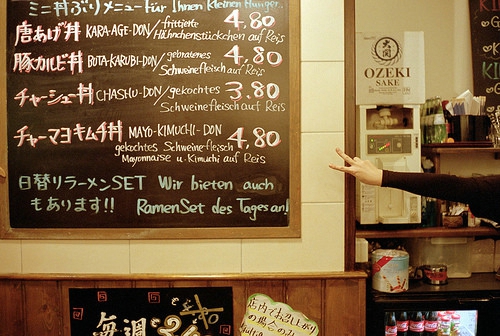 ミニ丼ぶりメニュー für Ihnen Kleinen Hunger..
唐あげ丼 KARA-AGE-DON/frittierte Hähnchenstückchen auf Reis 4,80
豚カルビ丼 BUTA-KARUBI-DON/gebratenes Schweinefleisch auf Reis 4,80
チャーシュー丼 CHASHU-DON/gekochtes Schweinefleisch auf Reis 3.80
チャーマヨキムチ丼 MAYO-KIMUCHI-DON 4,80
gekochtes Schweine-fleisch
Mayonnaise u. Kimuchi auf Reis
日替りラーメンSET Wir bieten auch
もあります!! RamenSet des Tages an!
大関
OZEKI
SAKE
KI
毎週
店内でお召し上がり
の場合のみ